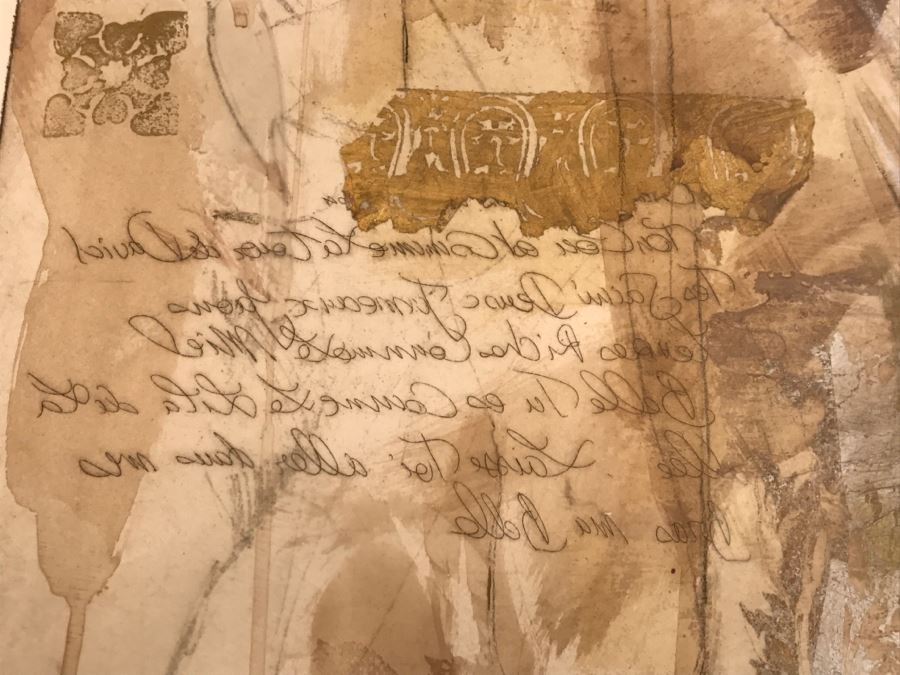 Ton Cou est Comme La Tour de David
Tes Saint Deux Jumeaux faons
Levres Riches Comme Le Miel
Belle Tu es Comme Le Lila de La
Laisse Toi aller dans mes
bras ma Belle